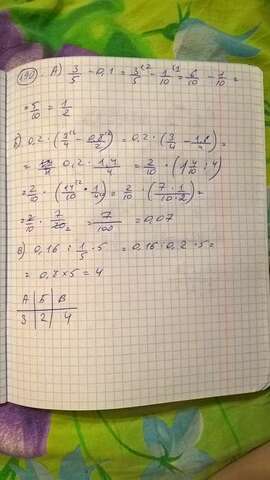 190. А) 3/5 - 0,1 = 3/5 - 1/10 = 6/10 - 1/10 =
= 5/10 = 1/2
б) 0,2 · (3/4 - 0,8/2) = 0,2 · (3/4 - 1,8/4) =
= 0,2 · 1,4/4 = 2/10 · (1 4/10 : 4) =
= 2/10 · (14/10 · 1/4) = 2/10 · (7 · 1/10 · 2) =
= 2/10 · 7/20 = 7/100 = 0,07
в) 0,16 : 1/5 · 5 = 0,16 : 0,2 · 5 =
= 0,8 × 5 = 4
А | Б | В
3 | 2 | 4